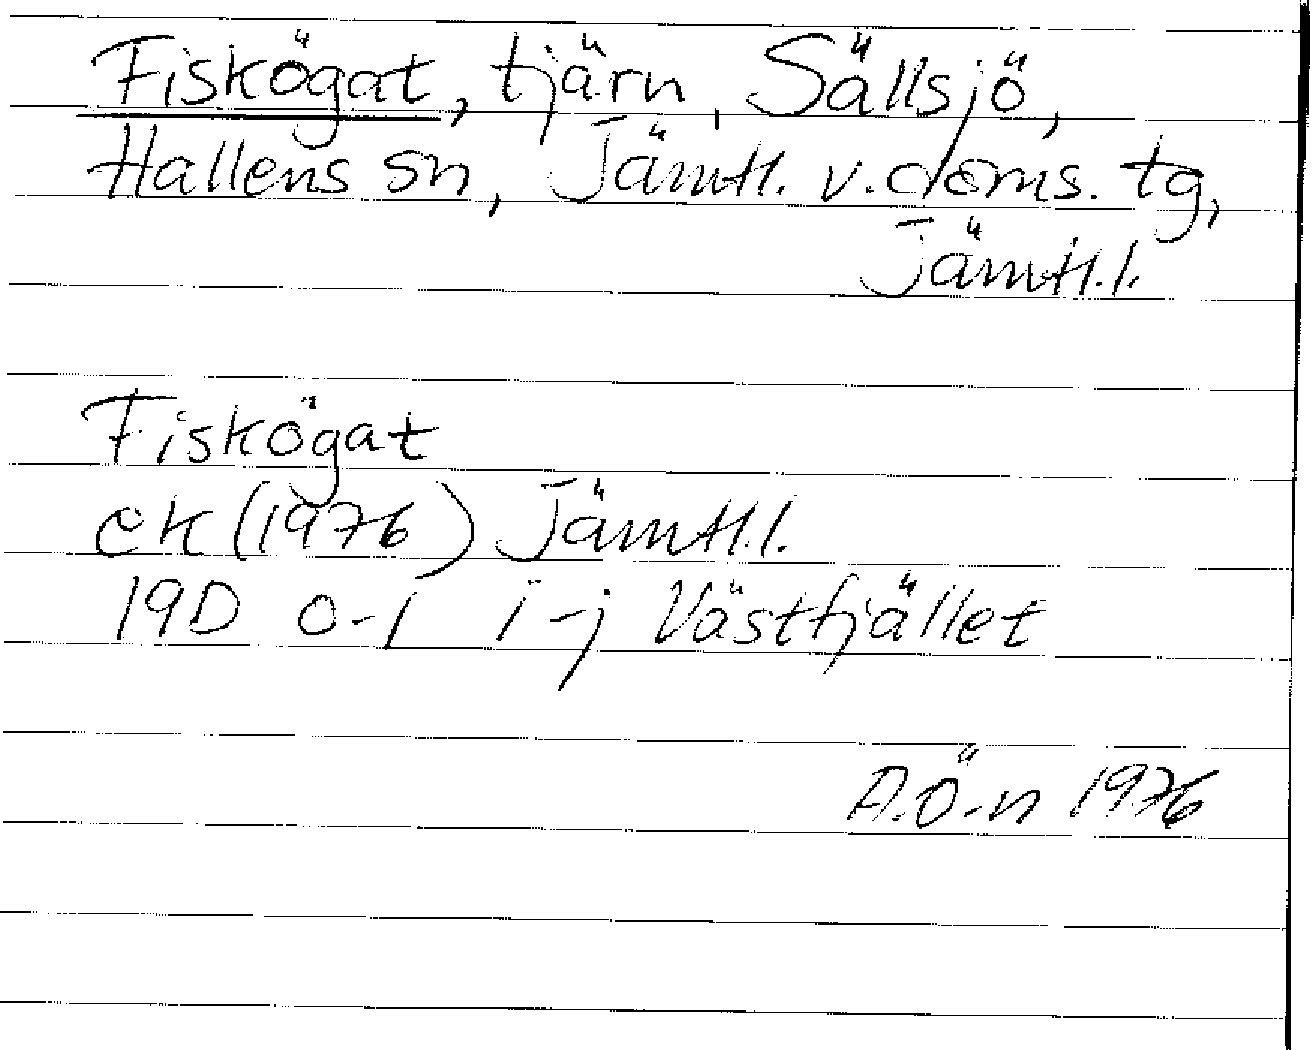 Fiskögat, tjärn, Sällsjö,
Hallens sn, Jämtl. v. doms. tg,
Jämtl. l.
Fiskögat
ek (1976) Jämtl. l.
19D 0-1 i-j Västfjället
A.Ö-n 1976